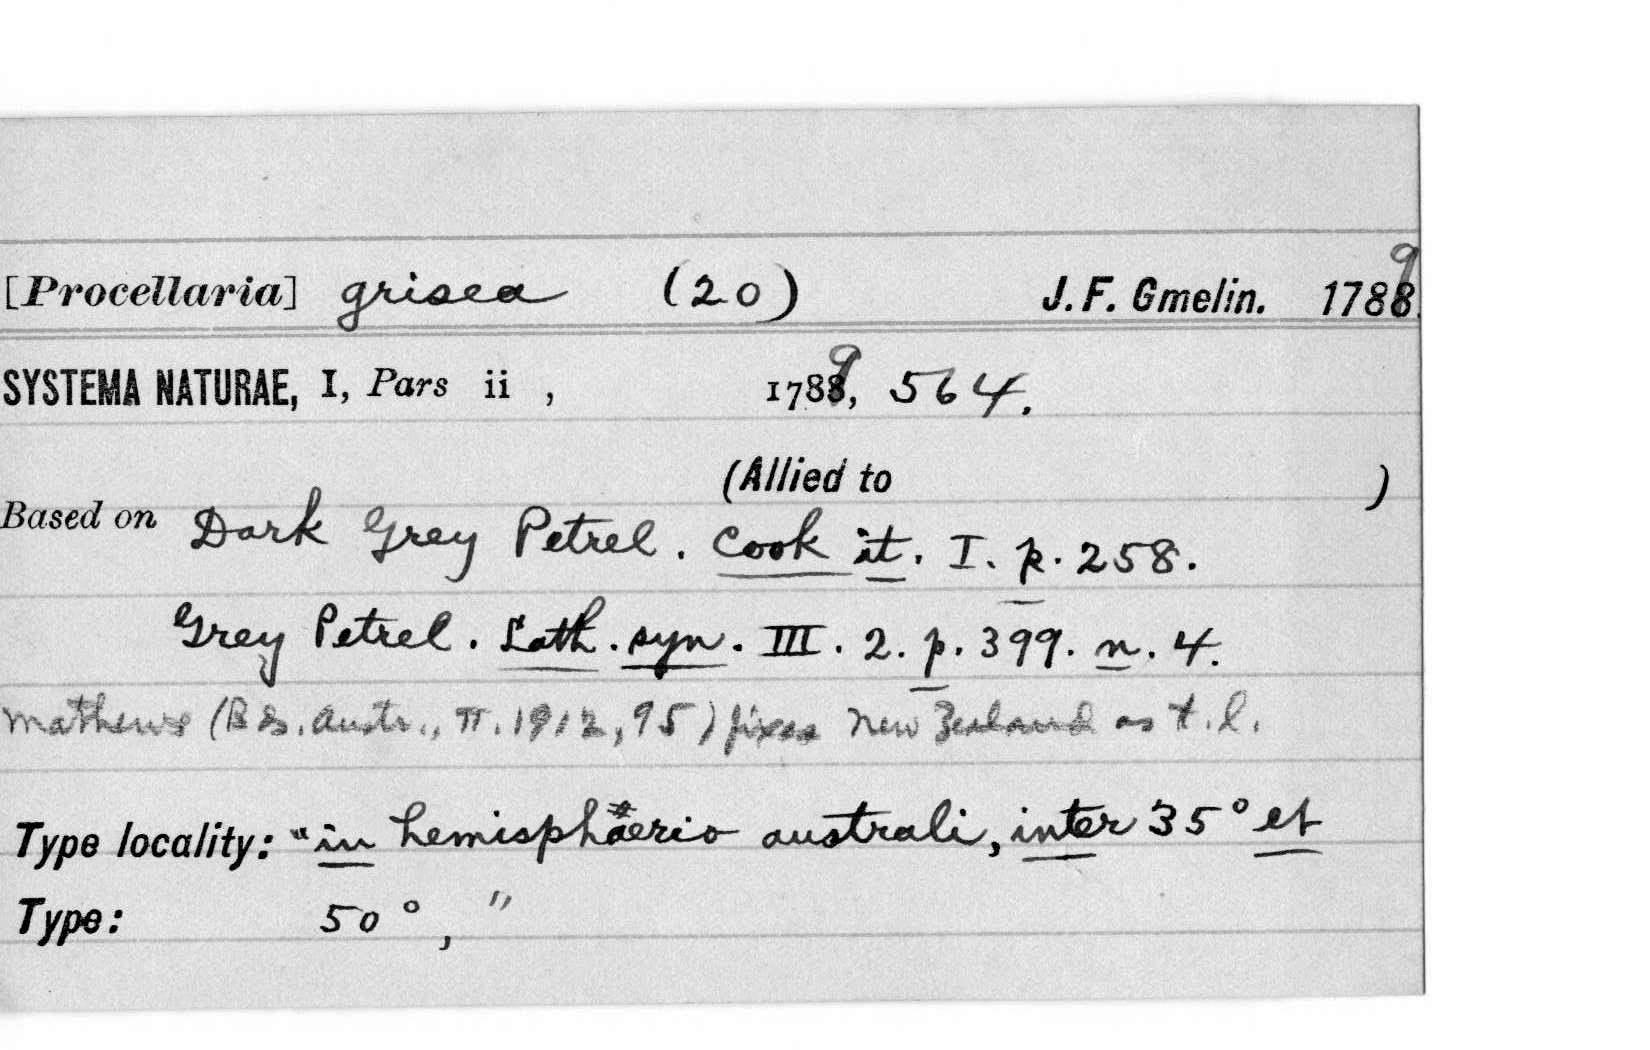 [Procellaria] grisea (20) J. F. Gmelin. 1789.
SYSTEMA NATURAE, I, Pars ii, 1789, 564.
(Allied to )
Based on Dark Grey Petrel. Cook it. I. p. 258.
Grey Petrel. Lath. syn. III. 2. p. 399. n. 4.
Mathews (Bds. Austr., II. 1912, 95) fixes New Zealand as t. l.
Type locality: "in hemisphaerio australi, inter 35° et
Type: 50°,"